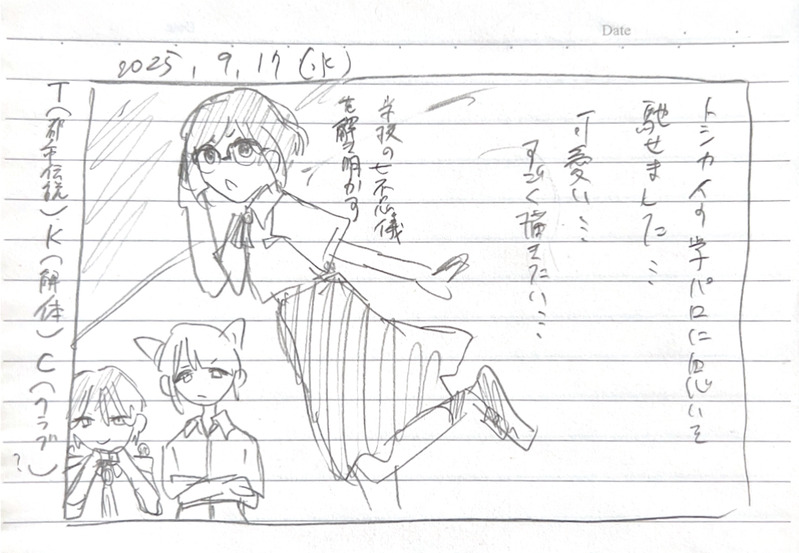 Date
2025,9,17(水)
トシカイの学パロに思いを
馳せました…
可愛い…
すごく描きたい…
学校の七不思儀
を解き明かす
T(都市伝説)K(解体)C(クラブ)?